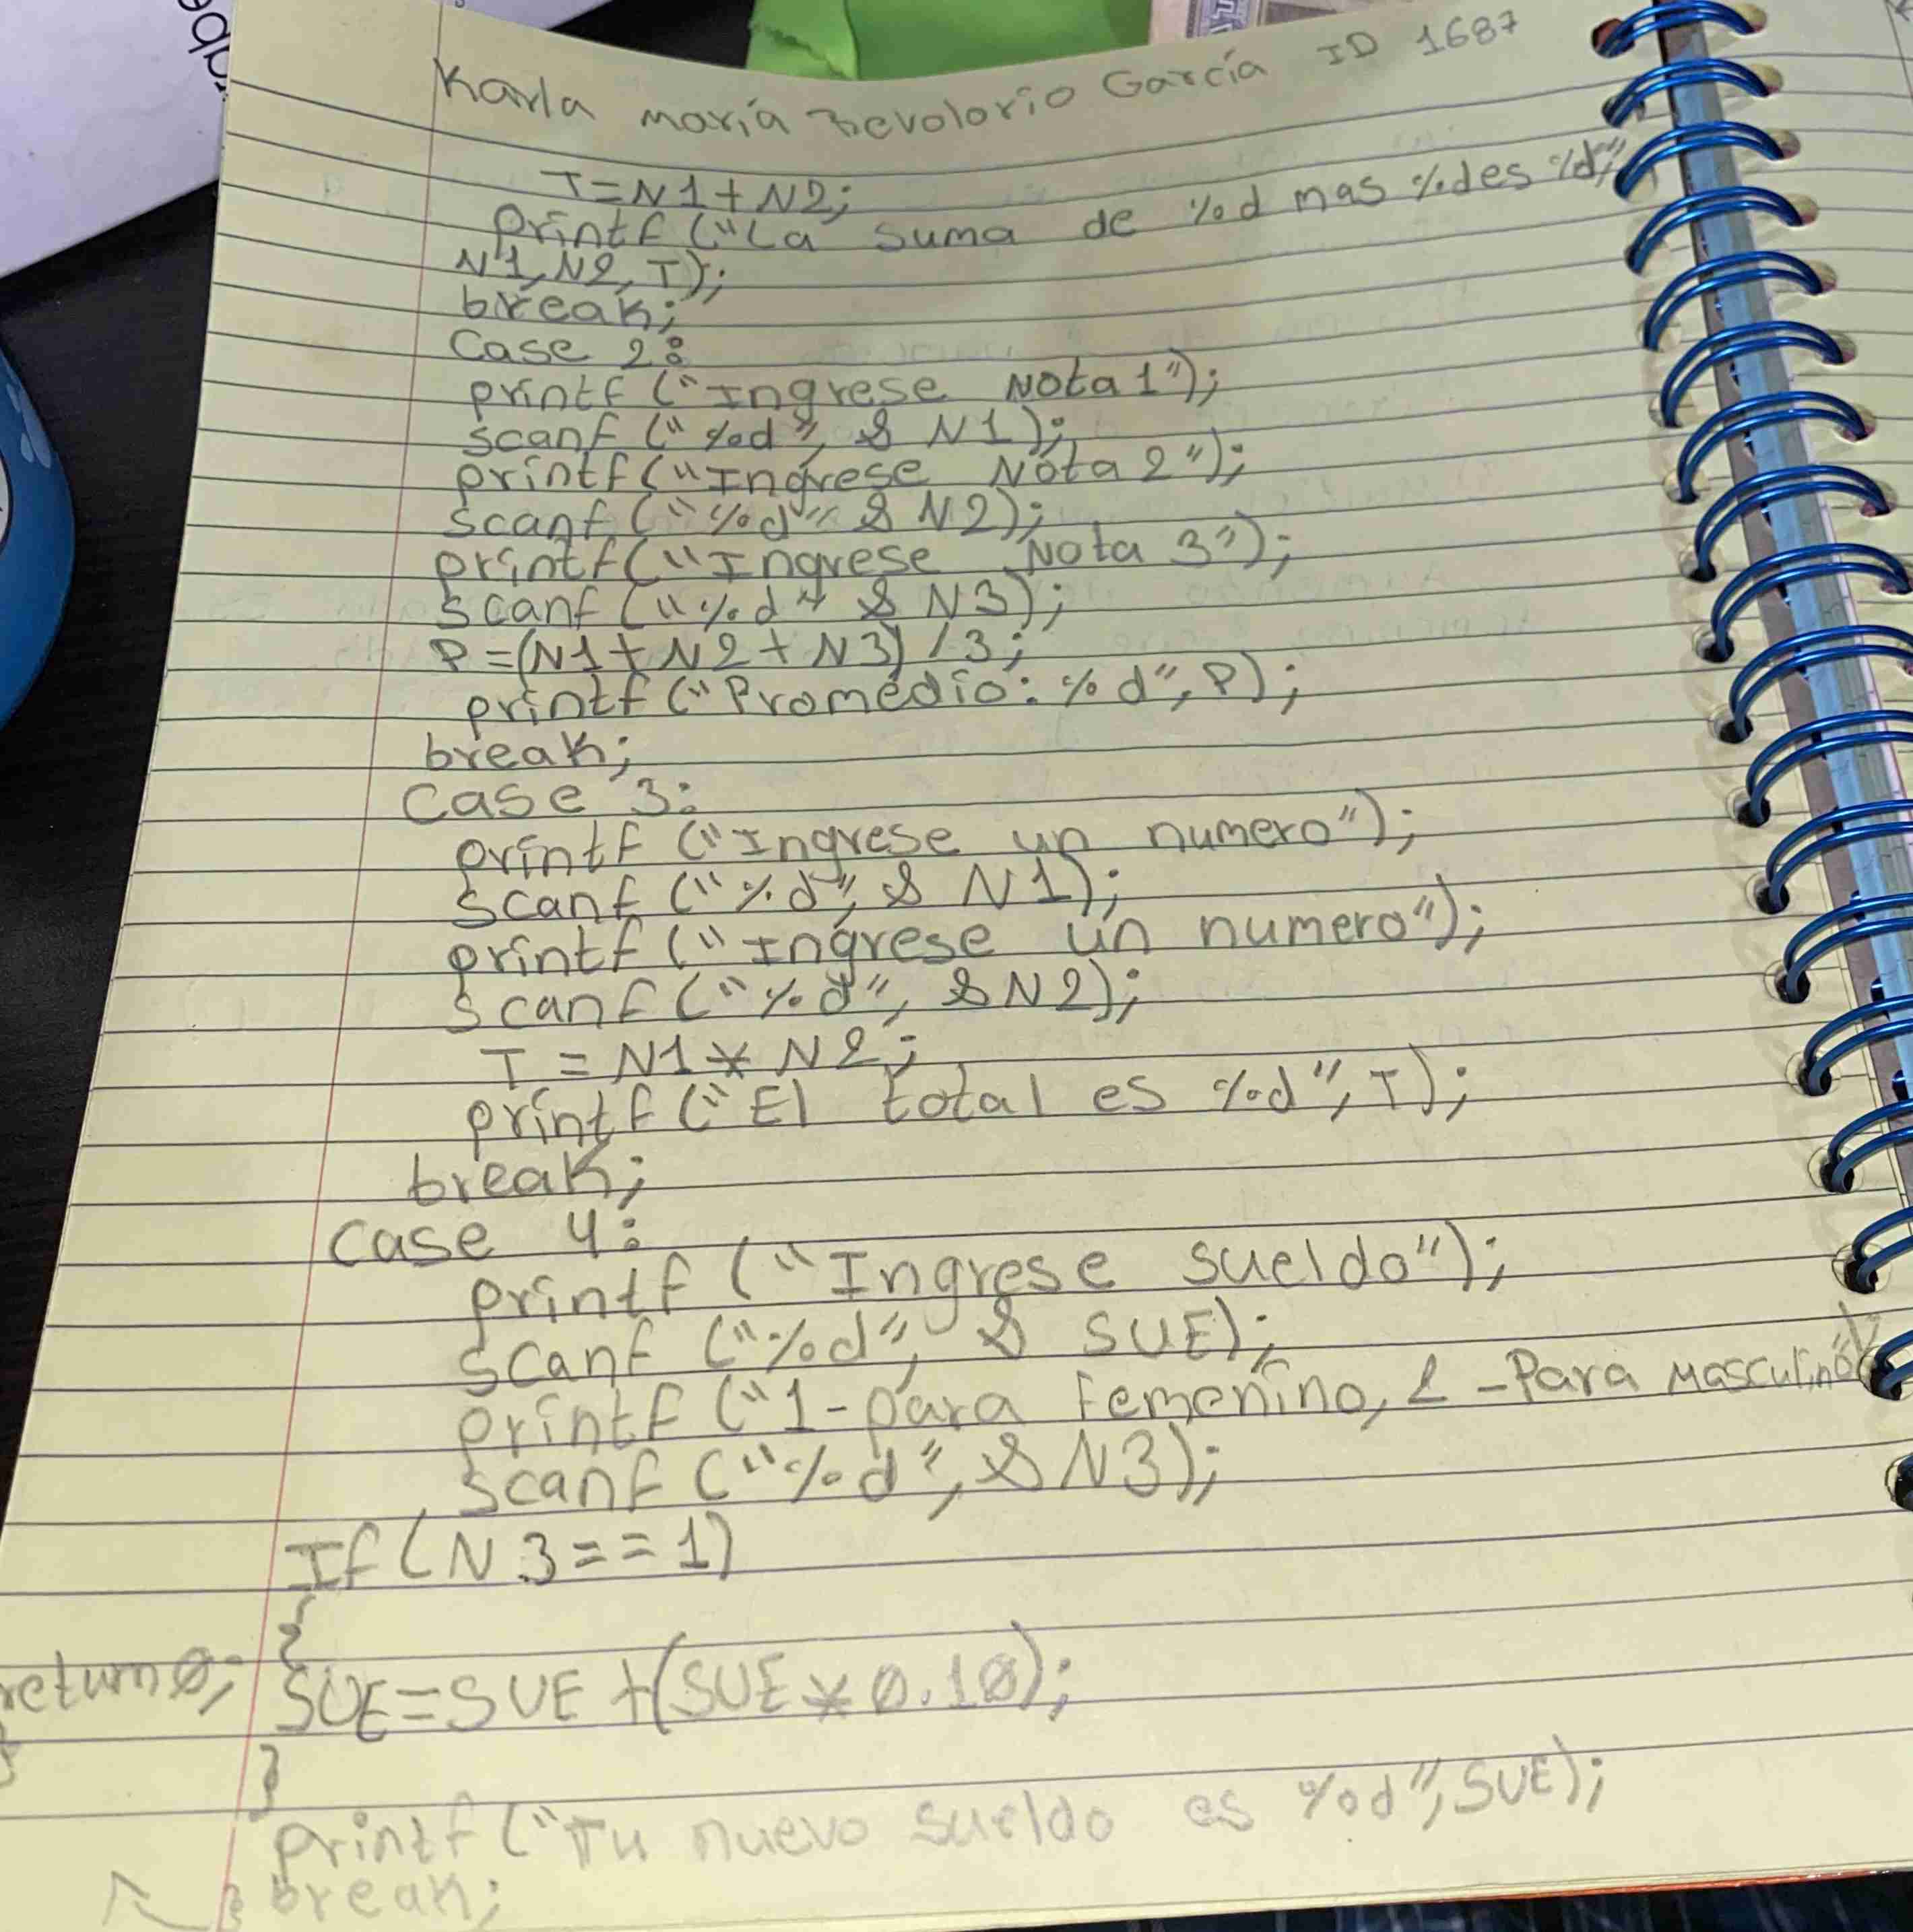 Karla maría Revolorio García ID 1687
T=N1+N2;
printf ("La suma de %d mas %d es %d",
N1, N2, T);
break;
Case 2:
printf ("Ingrese Nota 1");
scanf ("%d", & N1);
printf ("Ingrese Nota 2");
scanf ("%d" & N2);
printf ("Ingrese Nota 3");
scanf ("%d" & N3);
P=(N1+N2+N3)/3;
printf ("Promedio: %d", P);
break;
Case 3:
printf ("Ingrese un numero");
scanf ("%d", & N1);
printf ("Ingrese un numero");
scanf ("%d", &N2);
T = N1 * N2;
printf ("El total es %d", T);
break;
Case 4:
printf ("Ingrese sueldo");
scanf ("%d", & SUE);
printf ("1-para Femenino, 2-Para Masculino"
scanf ("%d", &N3);
If (N3==1)
{
SUE=SUE+(SUE*0.10);
}
printf ("Tu nuevo sueldo es %d", SUE);
break;
}
return 0;
}